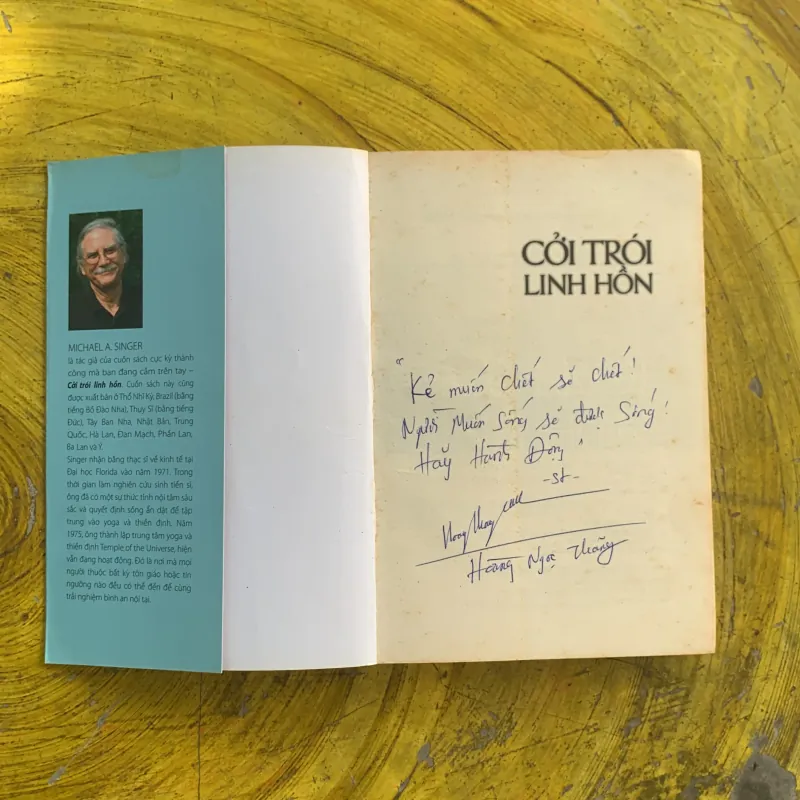 MICHAEL A. SINGER
là tác giả của cuốn sách cực kỳ thành
công mà bạn đang cầm trên tay –
Cởi trói linh hồn. Cuốn sách này cũng
được xuất bản ở Thổ Nhĩ Kỳ, Brazil (bằng
tiếng Bồ Đào Nha), Thụy Sĩ (bằng tiếng
Đức), Tây Ban Nha, Nhật Bản, Trung
Quốc, Hà Lan, Đan Mạch, Phần Lan,
Ba Lan và Ý.
Singer nhận bằng thạc sĩ về kinh tế tại
Đại học Florida vào năm 1971. Trong
thời gian làm nghiên cứu sinh tiến sĩ,
ông đã có một sự thức tỉnh nội tâm sâu
sắc và quyết định sống ẩn dật để tập
trung vào yoga và thiền định. Năm
1975, ông thành lập trung tâm yoga và
thiền định Temple of the Universe, hiện
vẫn đang hoạt động. Đó là nơi mà mọi
người thuộc bất kỳ tôn giáo hoặc tín
ngưỡng nào đều có thể đến để cùng
trải nghiệm bình an nội tại.
CỞI TRÓI
LINH HỒN
"Kẻ muốn chết sẽ chết!
Người Muốn Sống sẽ được Sống!
Hãy Hành Động"
-st-
Hoàng Ngọc Thắng